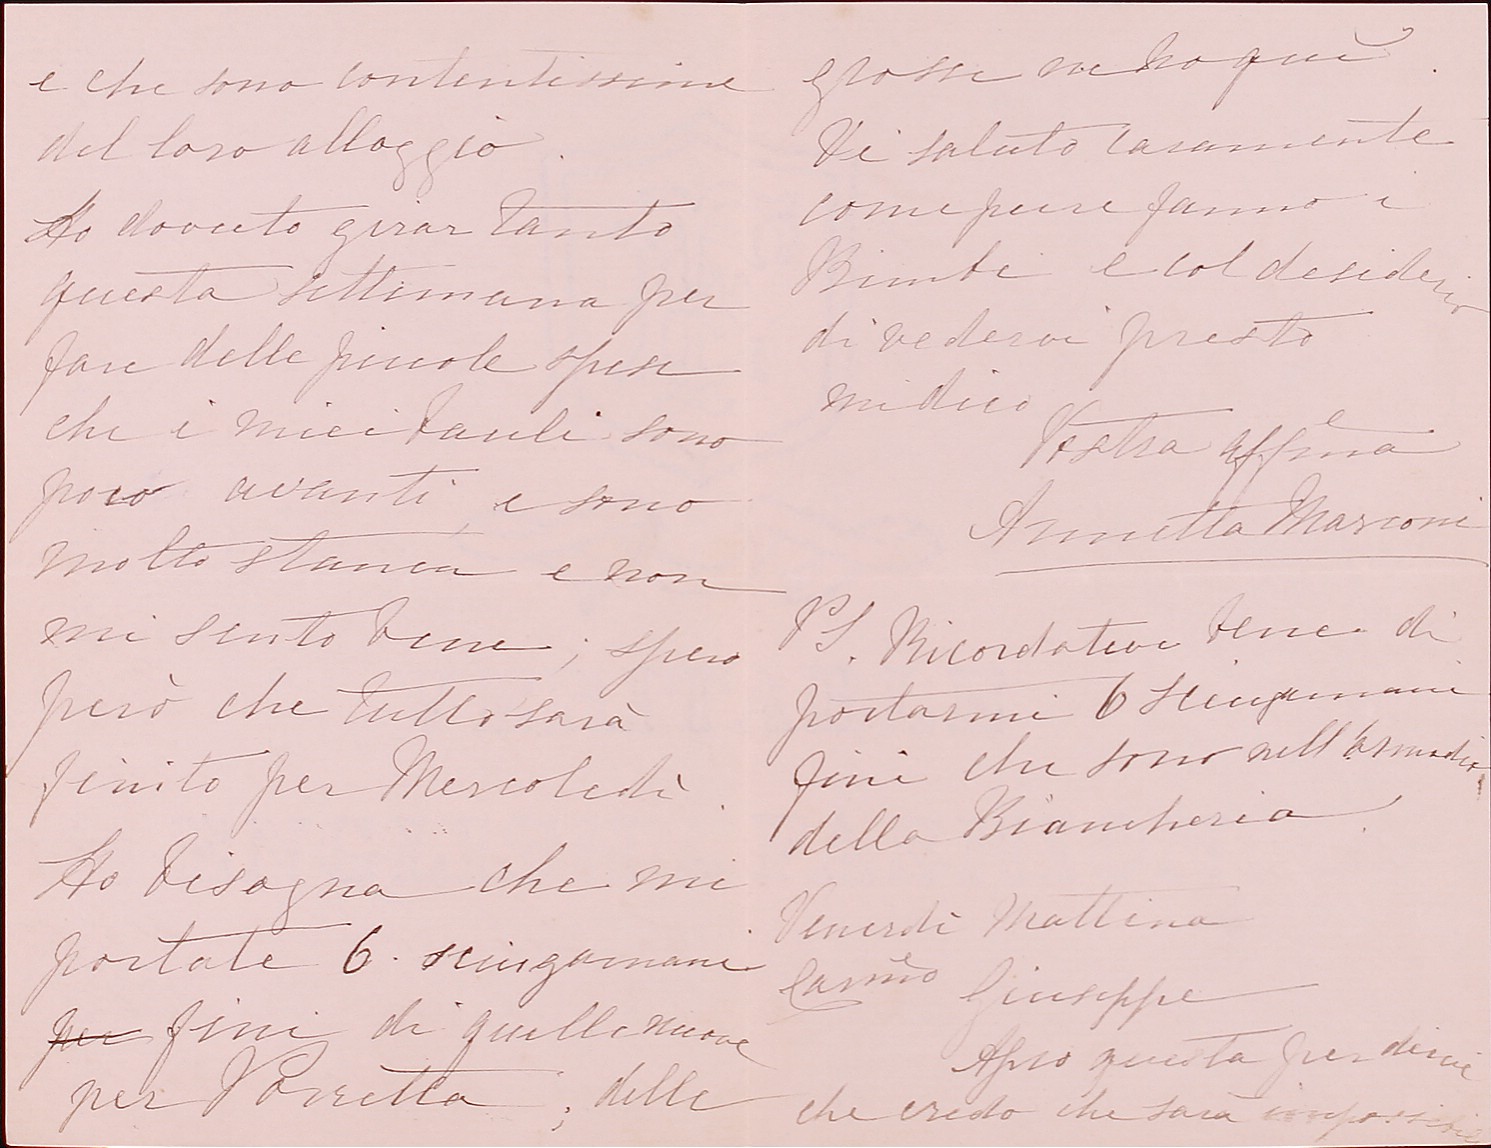 e che sono contentissime
del loro alloggio.
Ho dovuto girar tanto
questa settimana per
fare delle piccole spese
che i miei bauli sono
poco avanti, e sono
molto stanca e non
mi sento bene; spero
però che tutto sarà
finito per Mercoledì.
Ho bisogna che mi
portate 6. sciugamani
per fini di quelle nuove
per Porretta; delle
grosse ne ho quì.
Vi saluto caramente
come pure fanno i
Bimbi e col desiderio
di vedervi presto
mi dico
Vostra affma
Annetta Marconi
PS. Ricordatevi bene di
portarmi 6 sciugamani
fini che sono nell'armadio
della Biancheria.
Venerdì Mattina
Carmo Giuseppe
Apro questa per dirvi
che credo che sarà impossibile